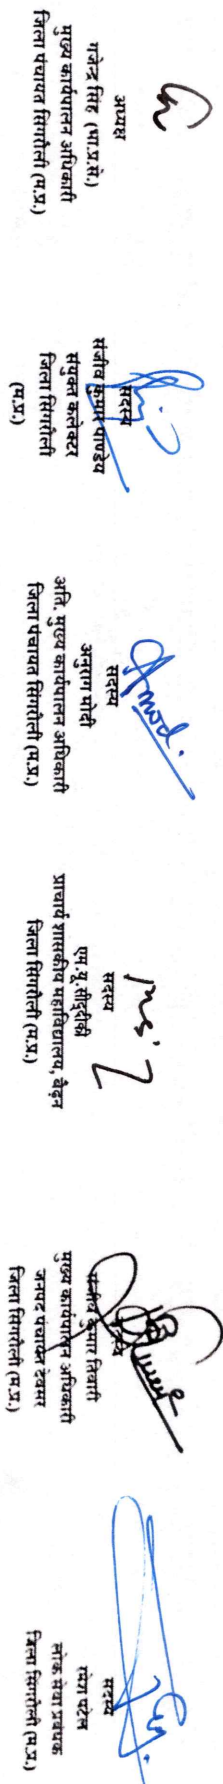 अध्यक्ष
गजेन्द्र सिंह (भा.प्र.से.)
मुख्य कार्यपालन अधिकारी
जिला पंचायत सिंगरौली (म.प्र.)
सदस्य
संजीव कुमार पाण्डेय
संयुक्त कलेक्टर
जिला सिंगरौली
(म.प्र.)
Amod.
सदस्य
अनुराग मोदी
अति. मुख्य कार्यपालन अधिकारी
जिला पंचायत सिंगरौली (म.प्र.)
सदस्य
एम.यू.सीद्दीकी
प्राचार्य शासकीय महाविद्यालय, बैढ़न
जिला सिंगरौली (म.प्र.)
सदस्य
कुमार तिवारी
मुख्य कार्यपालन अधिकारी
जनपद पंचायत देवसर
जिला सिंगरौली (म.प्र.)
सदस्य
रमेश पटेल
लोक सेवा प्रबंधक
जिला सिंगरौली (म.प्र.)